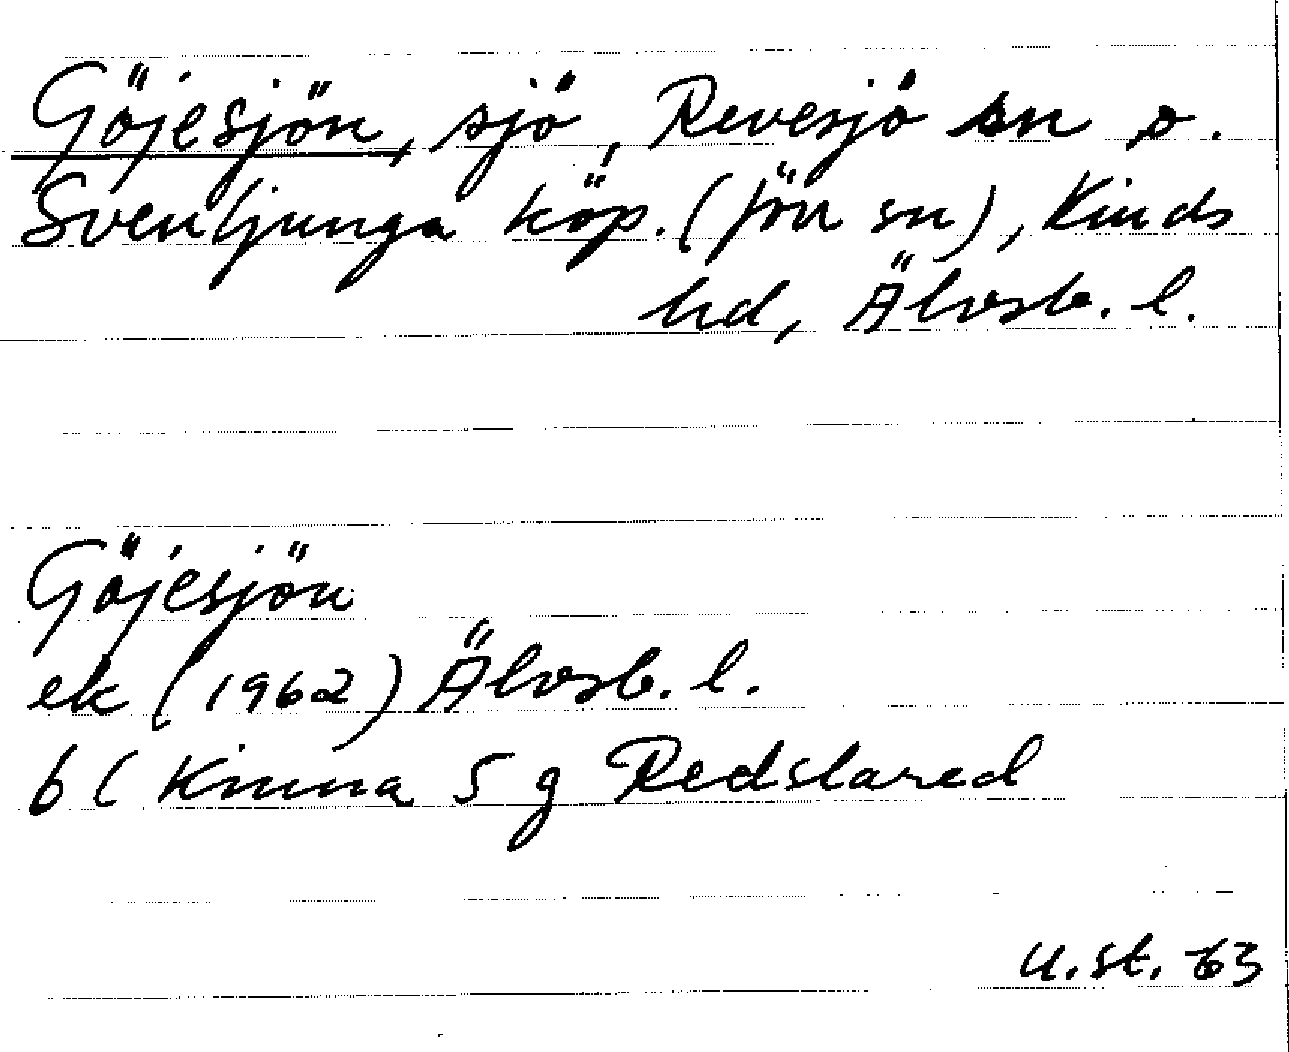 Göjesjön, sjö, Revesjö sn o.
Svenljunga köp. (förr sn), Kinds
hd, Älvsb. l.
Göjesjön
ek (1962) Älvsb. l.
6 C Kinna 5 g Redslared
U. st. 63